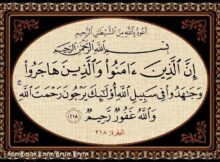 أعوذ بالله من الشيطن الرجيم
بسم الله الرحمن الرحيم
إن الذين ءامنوا والذين هاجروا
وجهدوا في سبيل الله أولئك يرجون رحمت الله
والله غفور رحيم ٢١٨
البقرة: ٢١٨